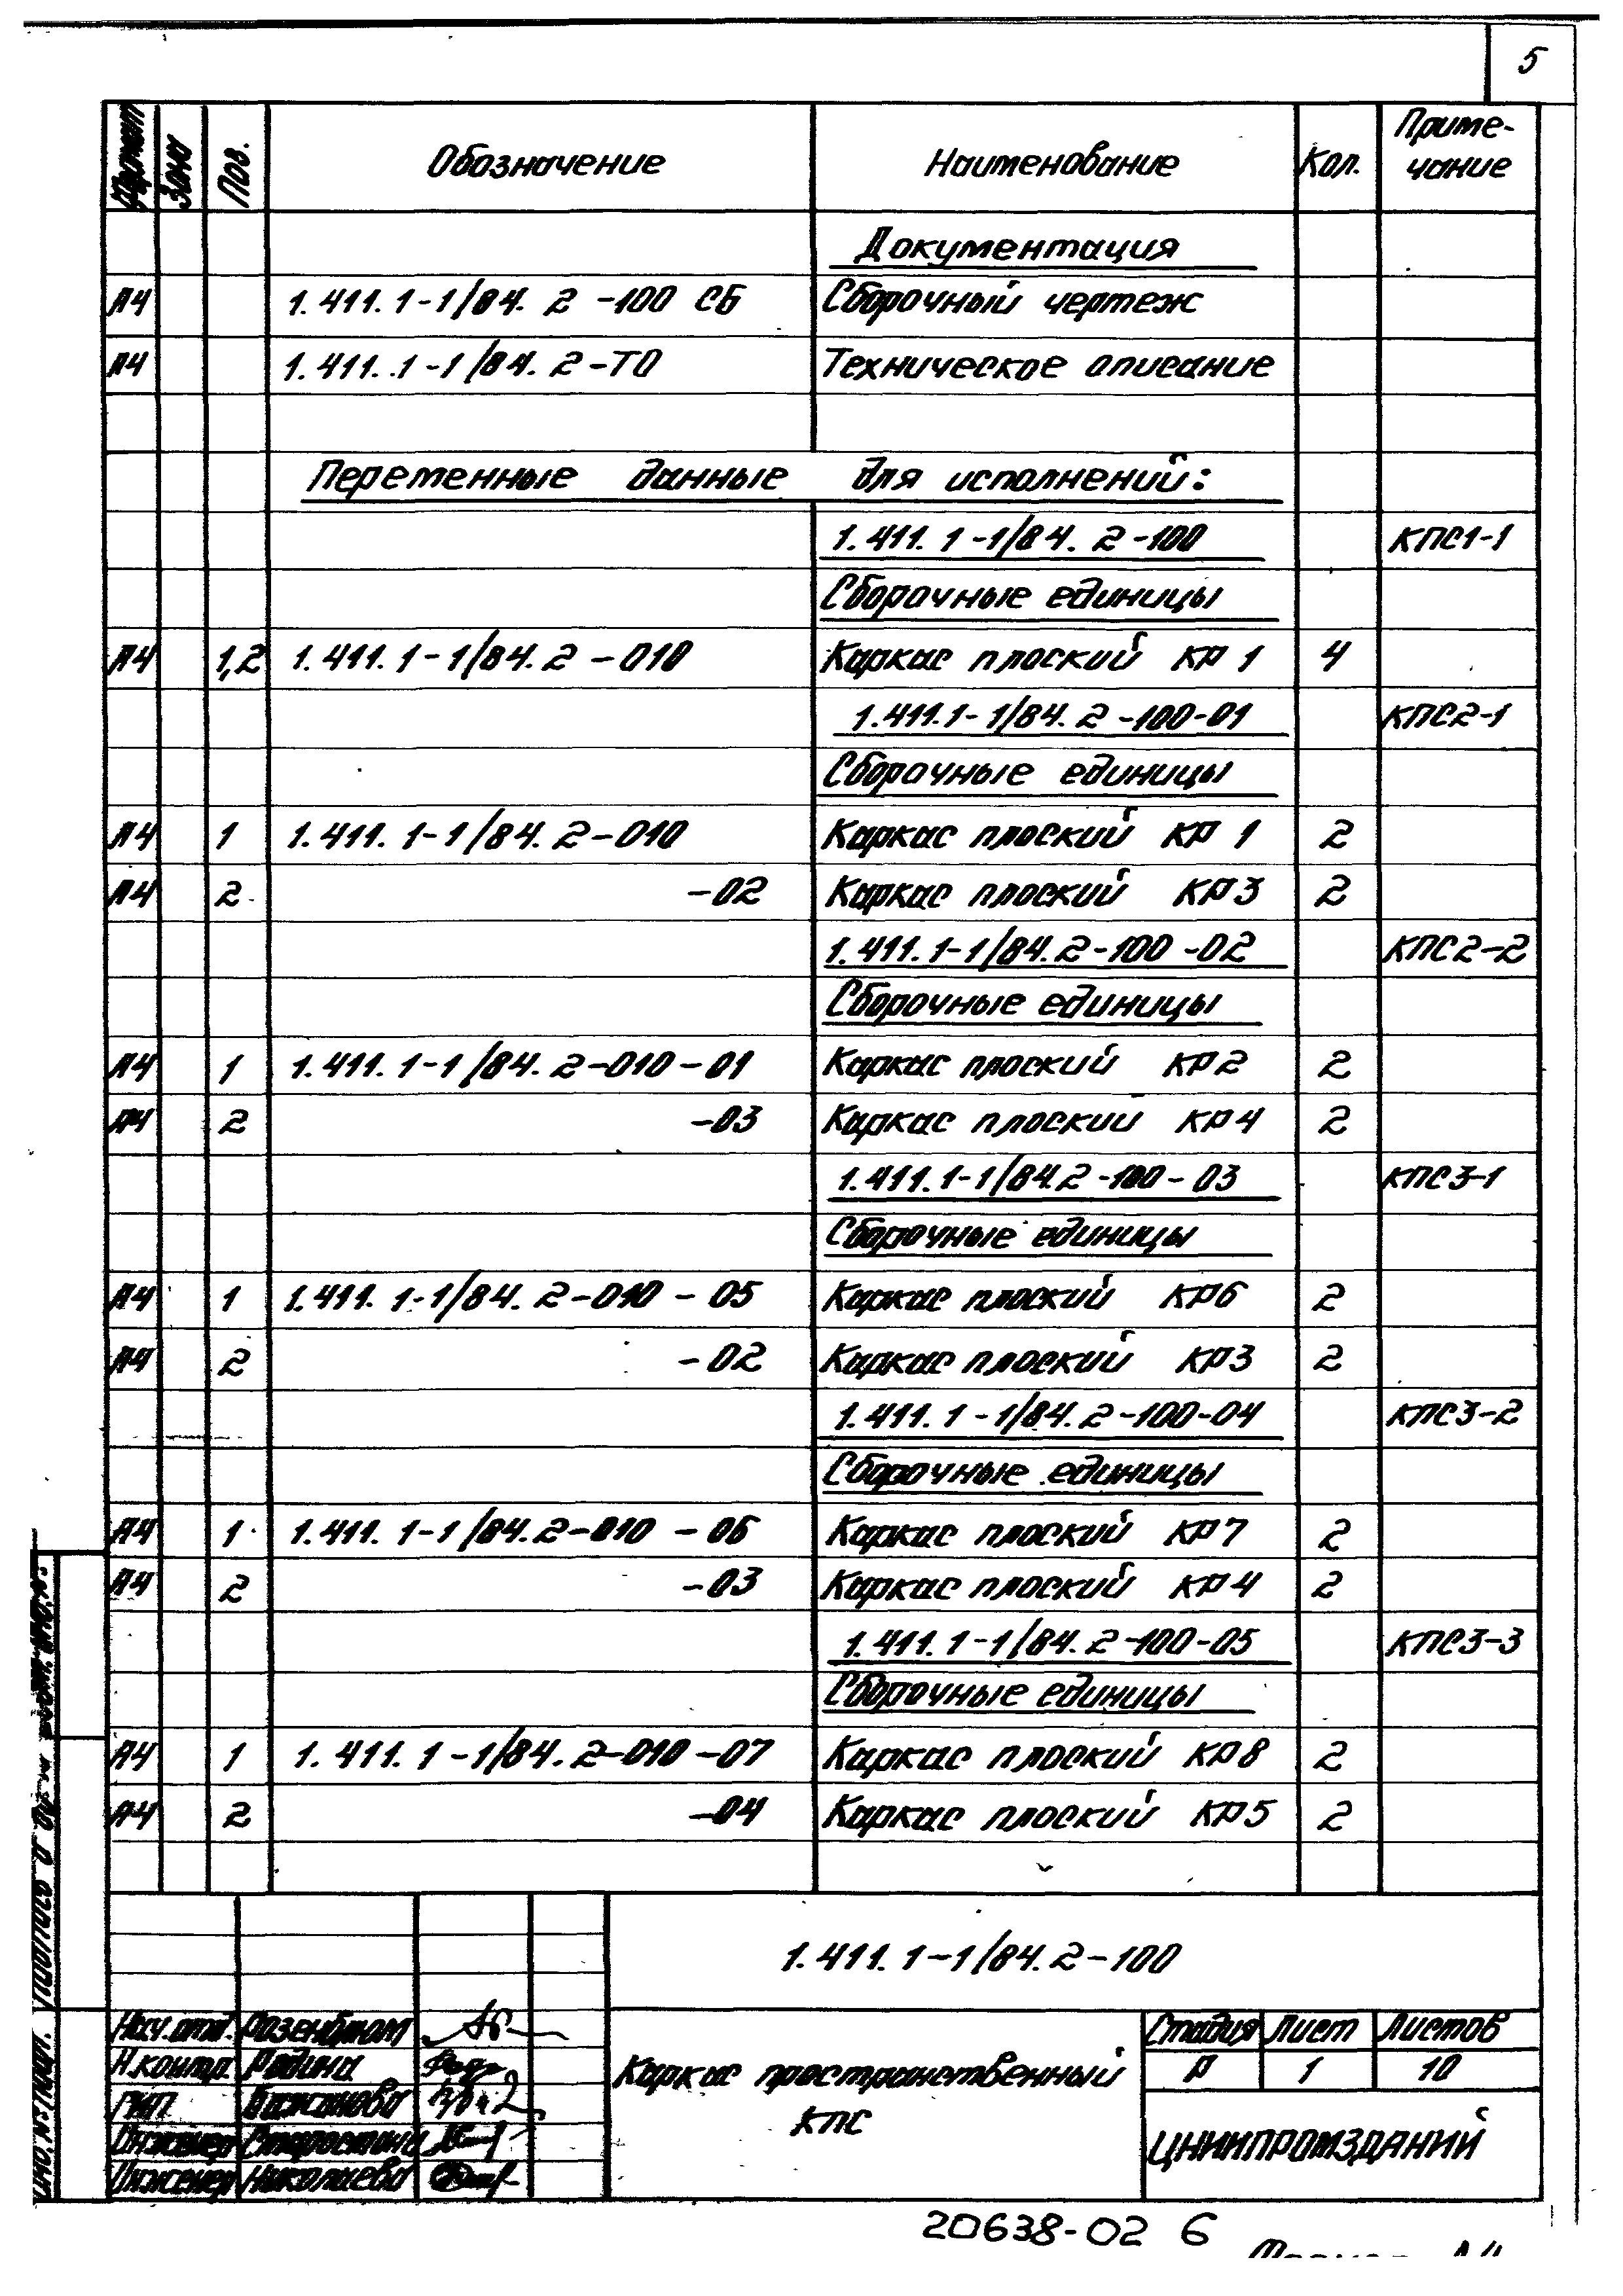 5
Формат Зона Поз. Обозначение Наименование Кол. Приме-
чание
Документация
А4 1.411.1-1/84.2-100 СБ Сборочный чертеж
А4 1.411.1-1/84.2-ТО Техническое описание
Переменные данные для исполнений:
1.411.1-1/84.2-100 КПС1-1
Сборочные единицы
А4 1,2 1.411.1-1/84.2-010 Каркас плоский КР1 4
1.411.1-1/84.2-100-01 КПС2-1
Сборочные единицы
А4 1 1.411.1-1/84.2-010 Каркас плоский КР1 2
А4 2 -02 Каркас плоский КР3 2
1.411.1-1/84.2-100-02 КПС2-2
Сборочные единицы
А4 1 1.411.1-1/84.2-010-01 Каркас плоский КР2 2
А4 2 -03 Каркас плоский КР4 2
1.411.1-1/84.2-100-03 КПС3-1
Сборочные единицы
А4 1 1.411.1-1/84.2-010-05 Каркас плоский КР6 2
А4 2 -02 Каркас плоский КР3 2
1.411.1-1/84.2-100-04 КПС3-2
Сборочные единицы
А4 1 1.411.1-1/84.2-010-06 Каркас плоский КР7 2
А4 2 -03 Каркас плоский КР4 2
1.411.1-1/84.2-100-05 КПС3-3
Сборочные единицы
А4 1 1.411.1-1/84.2-010-07 Каркас плоский КР8 2
А4 2 -04 Каркас плоский КР5 2
1.411.1-1/84.2-100
Нач. отд. Розенблюм
Н.контр. Родина
ГИП Бажанова
Инженер Старостина
Инженер Николаева
Каркас пространственный
КПС
Стадия Лист Листов
Р 1 10
ЦНИИПРОМЗДАНИЙ
Инв.№ подл.
20638-02 6